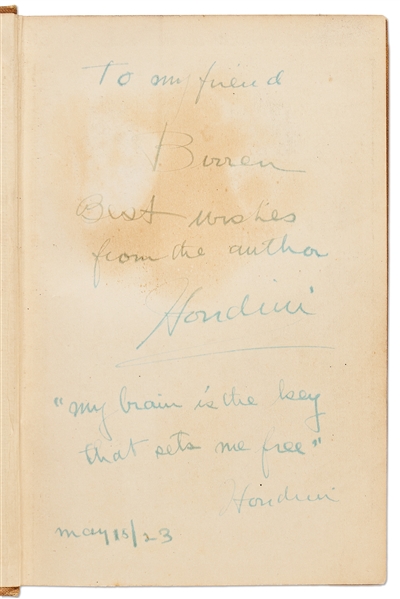 To my friend
Burren
Best wishes
from the author
Houdini
"my brain is the key
that sets me free"
Houdini
may 15/23